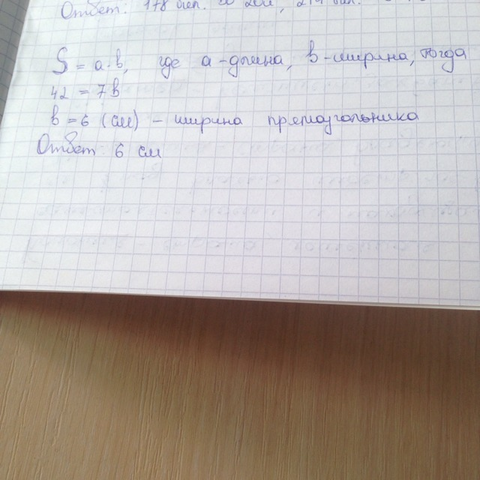 Ответ: 178
S = a·b, где a-длина, b-ширина, тогда
42 = 7b
b = 6 (см) - ширина прямоугольника
Ответ: 6 см